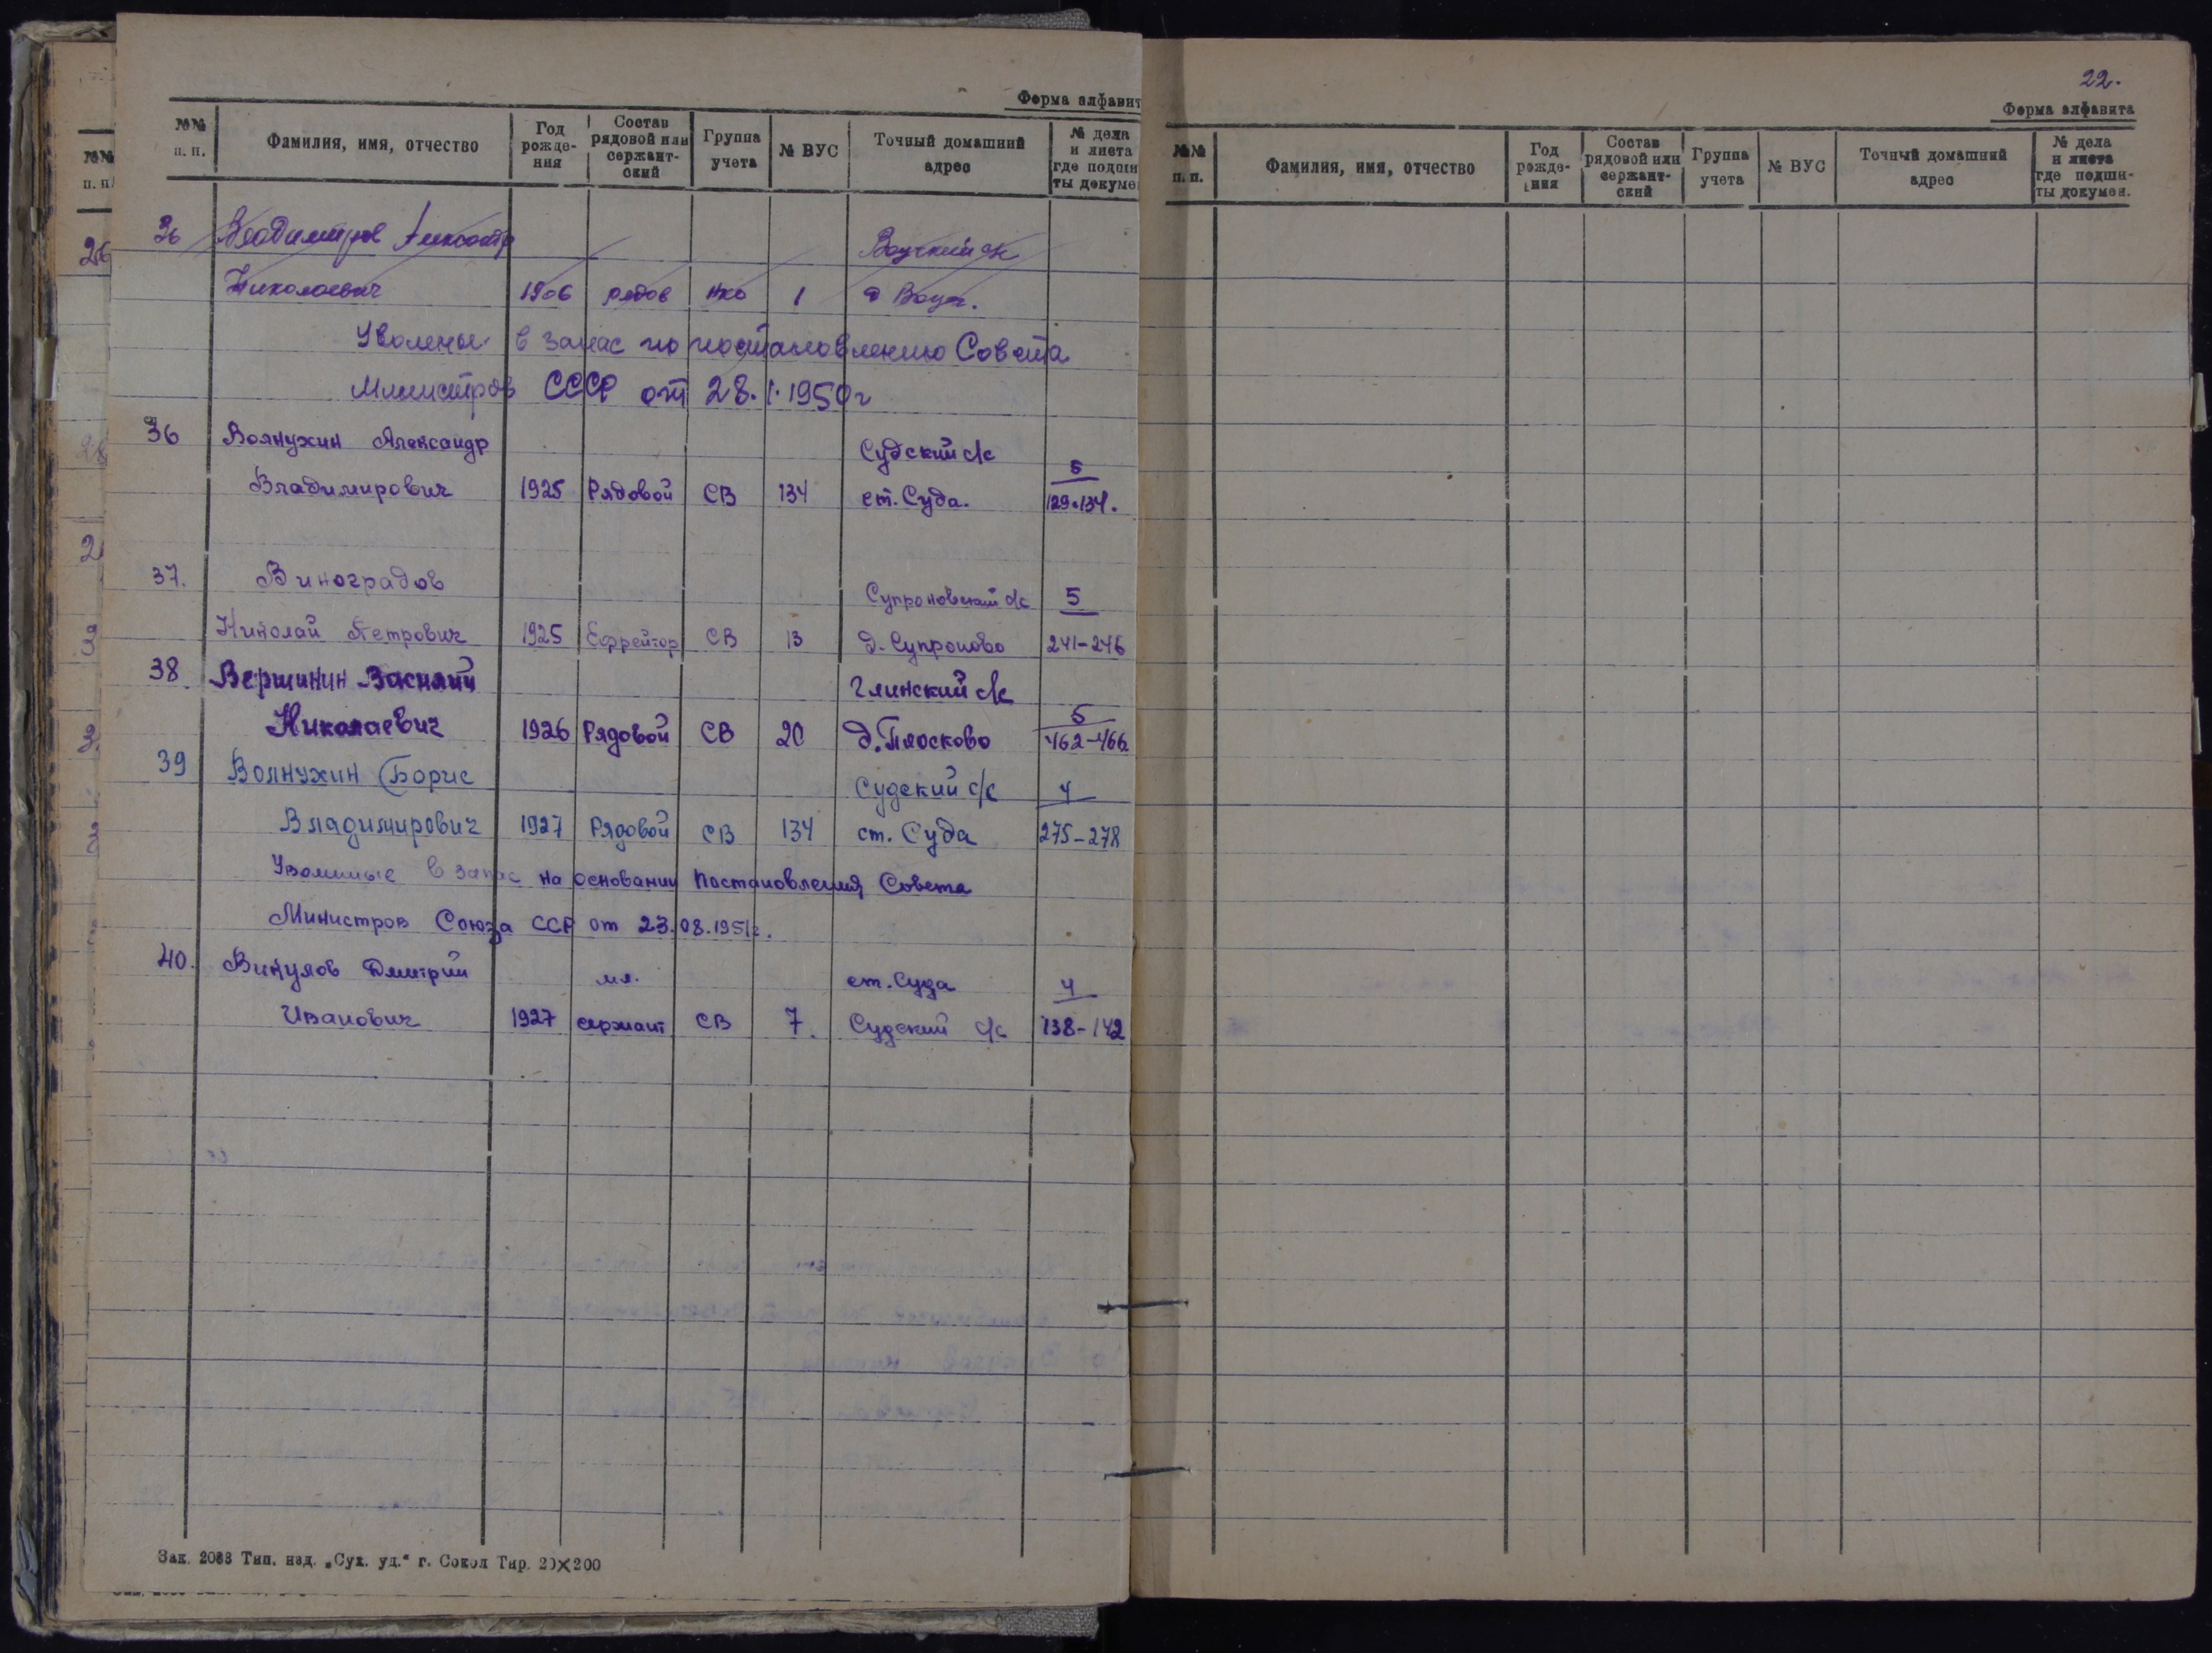 Форма алфавит
№№ п. п.
Фамилия, имя, отчество
Год рожде- ния
Состав рядовой или сержант- ский
Группа учета
№ ВУС
Точный домашний адрес
№ дела и листа где подши ты докуме
36 Владимиров Александр
Николаевич 1906 рядов нко 1
Уволены в запас по постановлению Совета
Министров СССР от 28.1.1950г
36 Волнухин Александр Судский с/с 5
Владимирович 1925 Рядовой СВ 134 ст. Суда. 129-134.
37. Виноградов Супроновский с/с 5
Николай Петрович 1925 Ефрейтор СВ 13 д. Супроново 241-246
38 Вершинин Василий Глинский с/с 5
Николаевич 1926 Рядовой СВ 20 д. Плосково 462-466
39 Волнухин Борис Судский с/с 4
Владимирович 1927 Рядовой СВ 134 ст. Суда 275-278
Уволиные в запас на основании Постановления Совета
Министров Союза ССР от 23.08.1951г.
40. Викулов Дмитрий мл. ст. Суда 4
Иванович 1927 сержант СВ 7. Судский с/с 138-142
Зак. 2088 Тип. изд. „Сух. уд.“ г. Сокол Тир. 20×200
22.
Форма алфавита
№№ п. п.
Фамилия, имя, отчество
Год рожде- ния
Состав рядовой или сержант- ский
Группа учета
№ ВУС
Точный домашний адрес
№ дела и листа где подши- ты докумен.